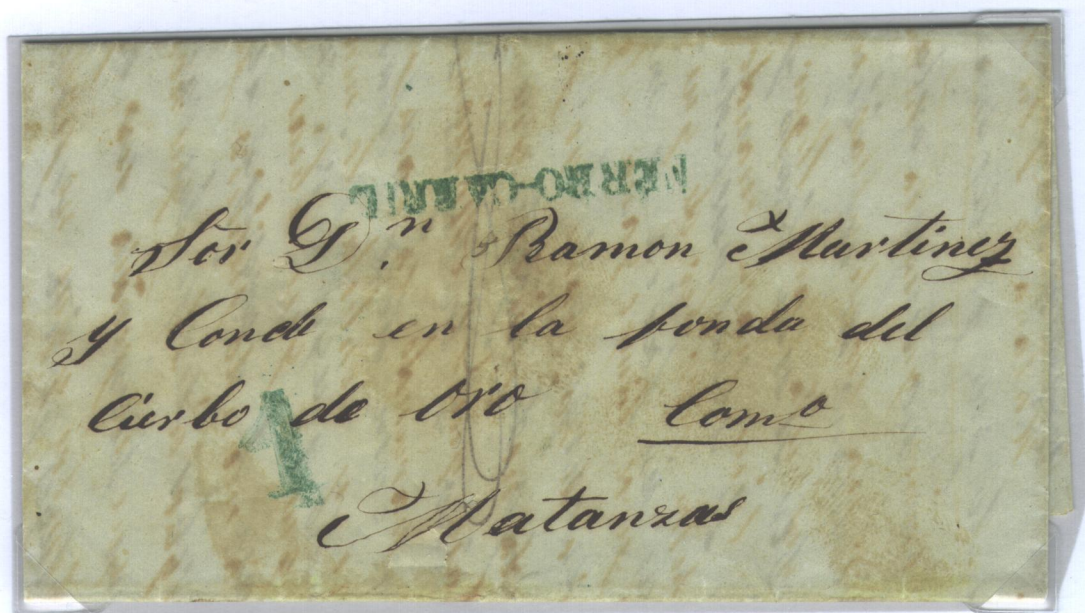 FERRO-CARRIL
Sor D.n Ramon Martinez
y Conde en la fonda del
Cierbo de oro Como
1
Matanzas